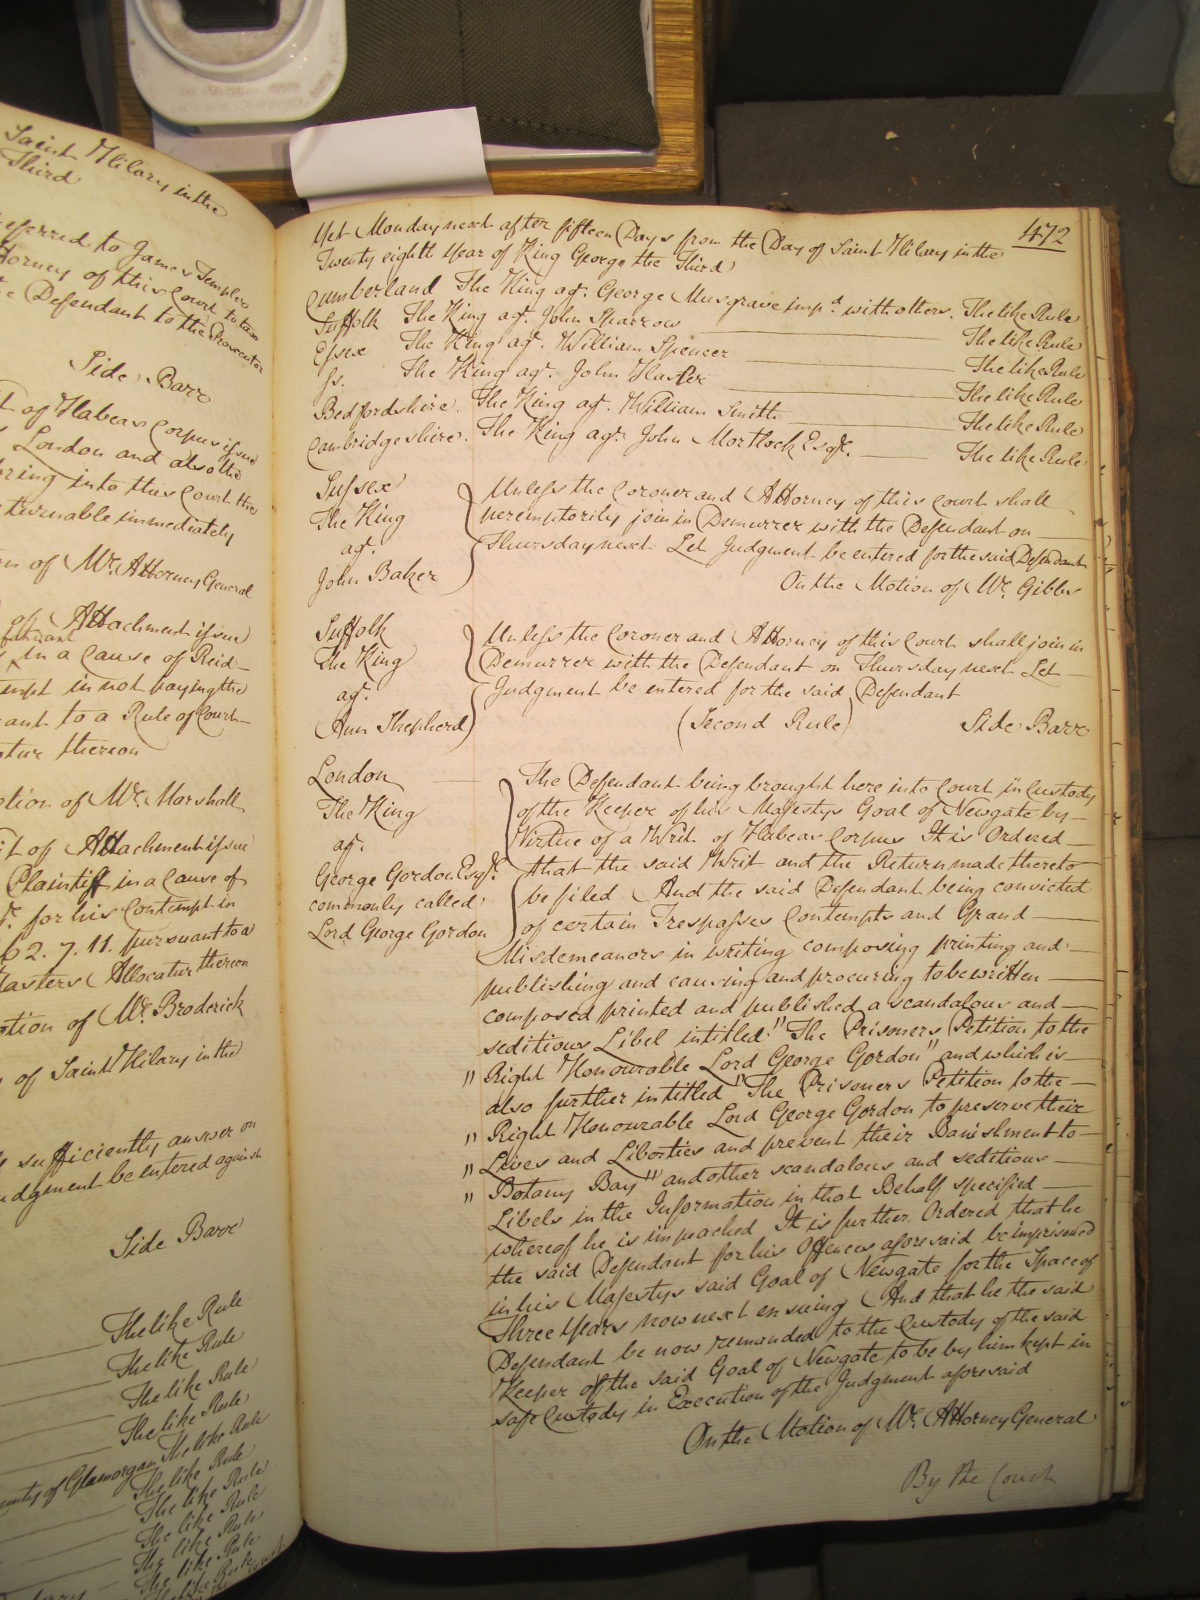 Saint Hilary in the
Third
referred to James Templer
Attorney of this Court to tax
the Defendant to the Prosecutor
Side Barr
of Habeas Corpus issue
London and also the
bring into this Court the
returnable immediately
of Mr. Attorney General
of Attachment issue
in a Cause of Reid
in not paying the
to a Rule of Court
thereon
Motion of Mr. Marshall
of Attachment issue
Plaintiff in a Cause of
for his Contempt in
62. 7. 11. pursuant to a
Masters Allocatur thereon
Motion of Mr. Broderick
of Saint Hilary in the
sufficiently answer on
Judgment be entered against
Side Barr
The like Rule
The like Rule
The like Rule
The like Rule
County of Glamorgan The like Rule
The like Rule
The like Rule
The like Rule
The like Rule
The like Rule
472
Yet Monday next after fifteen Days from the Day of Saint Hilary in the
Twenty eighth Year of King George the Third
Cumberland The King agt. George Musgrave impd. with others. The like Rule
Suffolk The King agt. John Sparrow The like Rule
Essex The King agt. William Spencer The like Rule
Ss. The King agt. John The like Rule
Bedfordshire. The King agt. William Smith The like Rule
Cambridgeshire. The King agt. John Mortlock Esqr. The like Rule
Sussex
The King
agt.
John Baker
Unless the Coroner and Attorney of this Court shall
peremptorily join in Demurrer with the Defendant on
Thursday next Let Judgment be entered for the said Defendant
On the Motion of Mr. Gibbs
Suffolk
The King
agt.
Ann Shepherd
Unless the Coroner and Attorney of this Court shall join in
Demurrer with the Defendant on Thursday next Let
Judgment be entered for the said Defendant
(Second Rule) Side Barr
London
The King
agt.
George Gordon Esqr.
commonly called
Lord George Gordon
The Defendant being brought here into Court in Custody
of the Keeper of his Majestys Goal of Newgate by
Virtue of a Writ of Habeas Corpus It is Ordered
that the said Writ and the Return made thereto
be filed And the said Defendant being convicted
of certain Trespasses Contempts and Grand
Misdemeanors in writing composing printing and
publishing and causing and procuring to be written
composed printed and published a scandalous and
seditious Libel intitled "The Prisoners Petition to the
" Right Honourable Lord George Gordon" and which is
also further intitled "The Prisoners Petition to the
" Right Honourable Lord George Gordon to preserve their
" Lives and Liberties and prevent their Banishment to
" Botany Bay" and other scandalous and seditious
Libels in the Information in that Behalf specified
whereof he is impeached It is further Ordered that he
the said Defendant for his Offences aforesaid be imprisoned
in his Majestys said Goal of Newgate for the Space of
Three Years now next ensuing And that he the said
Defendant be now remanded to the Custody of the said
Keeper of the said Goal of Newgate to be by him kept in
safe Custody in Execution of the Judgment aforesaid
On the Motion of Mr. Attorney General
By the Court